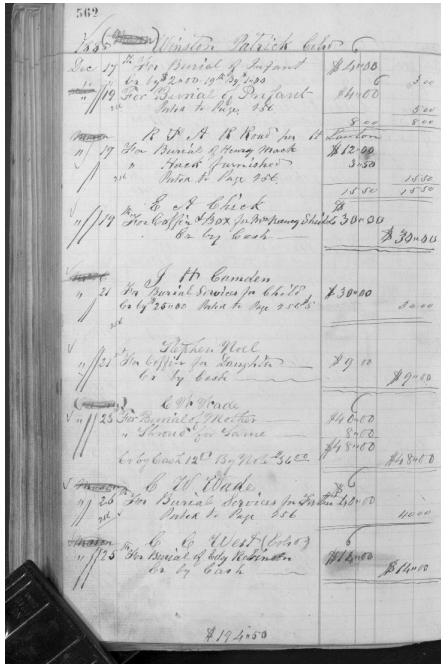 562
1885 Winston Patrick Cold
Dec 17th For Burial of Infant $4.00
Cr By $2.00 19th By $1.00 3.00
" 19 For Burial of Infant $4.00
Posted to Page 256 5.00
8.00 8.00
R & A R Road per Lawton
" 19 For Burial of Henry Mack $12.00
" Hack furnished 3.50
Posted to Page 256 15.50
15.50 15.50
E A Chick
" 19 For Coffin & Box for Shields 30.00
Cr by Cash $30.00
J H Camden
" 21 For Burial Services for Child $30.00
Cr by $25.00 Posted to Page 256 $5 30.00
Stephen Noel
" 21st For Coffin for Daughter $9.00
Cr by Cash $9.00
C W Wade
" 23 For Burial of Mother $40.00
" Shroud for Same 8.00
$48.00
Cr by Cash 12.00 By Note 36.00 $48.00
C W Wade
" 26th For Burial Services for 40.00
Posted to Page 256 40.00
C C West (Cold)
" 25th For Burial of Edy Robinson $14.00
Cr by Cash $14.00
$194.50